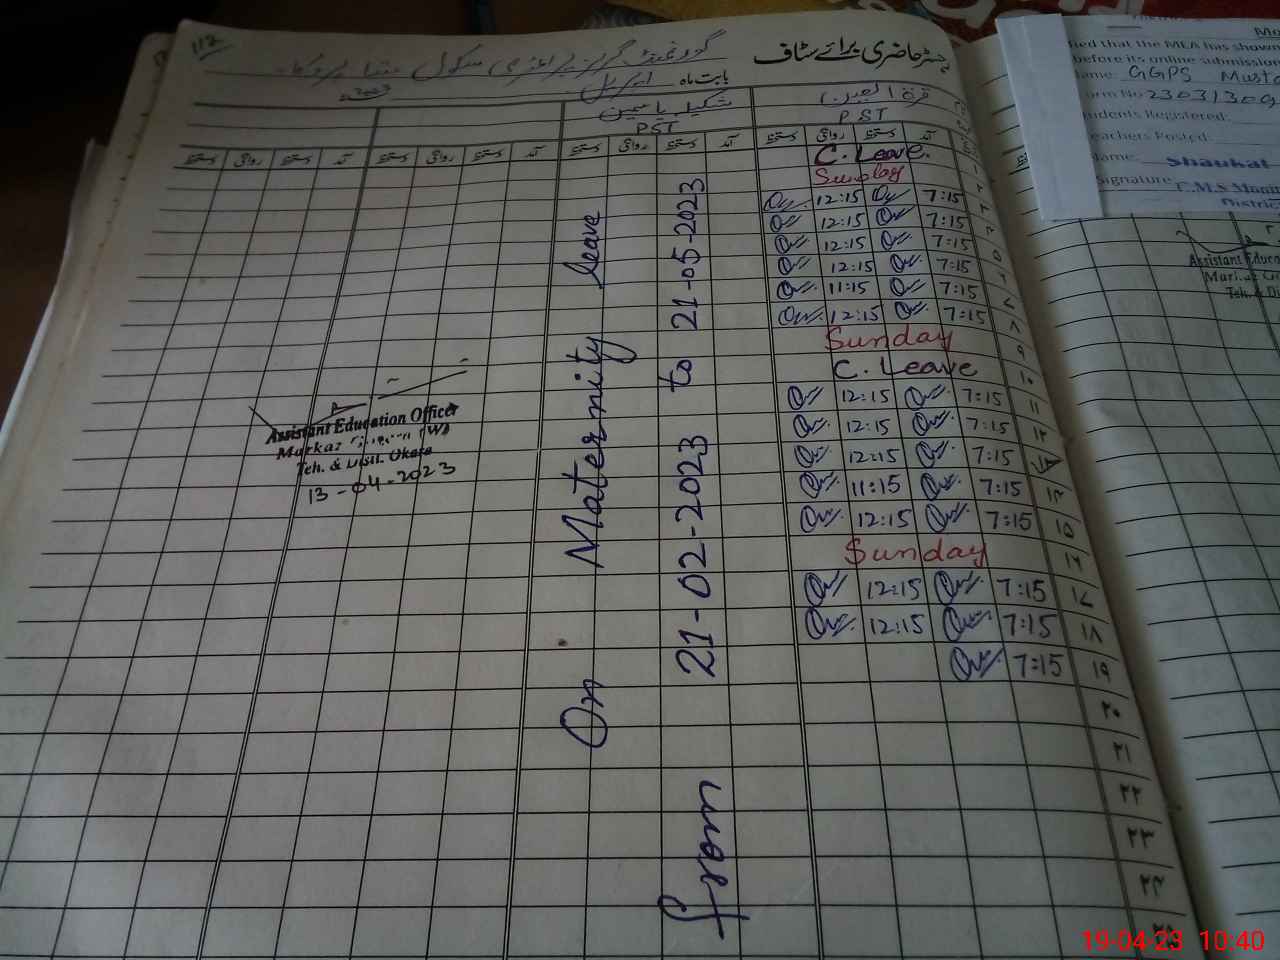 112
رجسٹر حاضری برائے سٹاف
گورنمنٹ گرلز پرائمری سکول
بابت ماہ اپریل 2023
قرۃ العین
شکیلہ یاسمین
PST
PST
آمد دستخط روانگی دستخط آمد دستخط روانگی دستخط آمد دستخط روانگی دستخط آمد دستخط روانگی دستخط
۱ C. Leave.
۲ Sunday
۳ 7:15 12:15
۴ 7:15 12:15
۵ 7:15 12:15
۶ 7:15 12:15
۷ 7:15 11:15
۸ 7:15 12:15
۹ Sunday
۱۰ C. Leave
۱۱ 7:15 12:15
۱۲ 7:15 12:15
7:15 12:15
۱۴ 7:15 11:15
۱۵ 7:15 12:15
۱۶ Sunday
۱۷ 7:15 12:15
۱۸ 7:15 12:15
۱۹ 7:15
۲۰
۲۱
۲۲
۲۳
۲۴
On Maternity leave
from 21-02-2023 to 21-05-2023
Assistant Education Officer
Markaz (W)
Teh. & Distt. Okara
13-04-2023
fied that the MEA has shown
before its online submission
Name: GGPS
Form No 23031309
Students Registered:
Teachers Posted:
Name: Shaukat
Signature
District
Assistant Educa
Teh. & Di
19-04-23 10:40